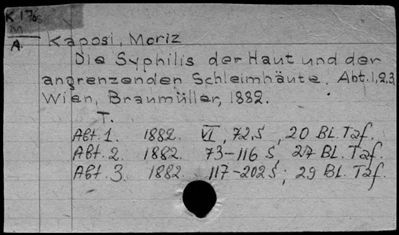 K 176
M
A.
Kaposi, Moriz
Die Syphilis der Haut und der
angrenzenden Schleimhäute. Abt. 1,2,3
Wien, Braumüller, 1882.
T.
Abt. 1. 1882. VI, 72 S, 20 Bl. Taf.
Abt. 2. 1882. 73-116 S, 27 Bl. Taf.
Abt. 3. 1882 117-202 S; 29 Bl. Taf.